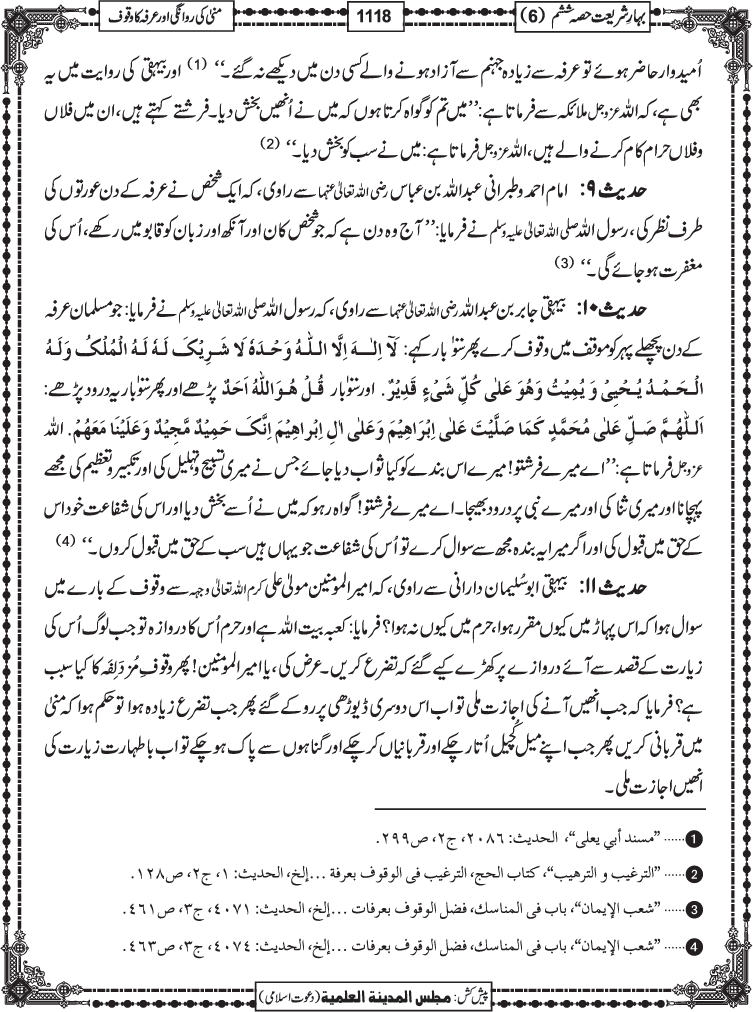 بہارِشریعت حصہ ششم (6)
1118
منٰی کی روانگی اور عرفہ کا وقوف
اُمیدوار حاضر ہوئے تو عرفہ سے زیادہ جہنم سے آزاد ہونے والے کسی دن میں دیکھے نہ گئے۔‘‘ (1) اور بیہقی کی روایت میں یہ
بھی ہے، کہ اللہ عزوجل ملائکہ سے فرماتا ہے: ’’میں تم کو گواہ کرتا ہوں کہ میں نے اُنھیں بخش دیا۔ فرشتے کہتے ہیں، ان میں فلاں
وفلاں حرام کام کرنے والے ہیں، اللہ عزوجل فرماتا ہے: میں نے سب کو بخش دیا۔‘‘ (2)
حدیث ۹: امام احمد و طبرانی عبداللہ بن عباس رضی اللہ تعالیٰ عنہما سے راوی، کہ ایک شخص نے عرفہ کے دن عورتوں کی
طرف نظر کی، رسول اللہ صلی اللہ تعالیٰ علیہ وسلم نے فرمایا: ’’آج وہ دن ہے کہ جو شخص کان اور آنکھ اور زبان کو قابو میں رکھے، اُس کی
مغفرت ہو جائے گی۔‘‘ (3)
حدیث ۱۰: بیہقی جابر بن عبداللہ رضی اللہ تعالیٰ عنہما سے راوی، کہ رسول اللہ صلی اللہ تعالیٰ علیہ وسلم نے فرمایا: جو مسلمان عرفہ
کے دن پچھلے پہر کو موقف میں وقوف کرے پھر سَو بار کہے: لَآ اِلٰہَ اِلَّا اللّٰہُ وَحْدَہٗ لَا شَرِیْکَ لَہٗ لَہُ الْمُلْکُ وَلَہُ
الْحَمْدُ یُحْیِیْ وَ یُمِیْتُ وَھُوَ عَلٰی کُلِّ شَیْءٍ قَدِیْرٌ. اور سَو بار قُلْ ھُوَاللّٰہُ اَحَدٌ پڑھے اور پھر سَو بار یہ درود پڑھے:
اَللّٰھُمَّ صَلِّ عَلٰی مُحَمَّدٍ کَمَا صَلَّیْتَ عَلٰی اِبْرَاھِیْمَ وَعَلٰی اٰلِ اِبْرَاھِیْمَ اِنَّکَ حَمِیْدٌ مَّجِیْدٌ وَعَلَیْنَا مَعَھُمْ. اللہ
عزوجل فرماتا ہے: ’’اے میرے فرشتو! میرے اس بندے کو کیا ثواب دیا جائے جس نے میری تسبیح و تہلیل کی اور تکبیر و تعظیم کی مجھے
پہچانا اور میری ثنا کی اور میرے نبی پر درود بھیجا۔ اے میرے فرشتو! گواہ رہو کہ میں نے اُسے بخش دیا اور اس کی شفاعت خود اس
کے حق میں قبول کی اور اگر میرا یہ بندہ مجھ سے سوال کرے تو اُس کی شفاعت جو یہاں ہیں سب کے حق میں قبول کروں۔‘‘ (4)
حدیث ۱۱: بیہقی ابوسُلیمان دارانی سے راوی، کہ امیر المومنین مولیٰ علی کرم اللہ تعالیٰ وجہہ سے وقوف کے بارے میں
سوال ہوا کہ اس پہاڑ میں کیوں مقرر ہوا، حرم میں کیوں نہ ہوا؟ فرمایا: کعبہ بیت اللہ ہے اور حرم اُس کا دروازہ تو جب لوگ اُس کی
زیارت کے قصد سے آئے دروازے پر کھڑے کیے گئے کہ تضرع کریں۔ عرض کی، یا امیر المومنین! پھر وقوفِ مُزدَلِفَہ کا کیا سبب
ہے؟ فرمایا کہ جب انھیں آنے کی اجازت ملی تو اب اس دوسری ڈیوڑھی پر روکے گئے پھر جب تضرع زیادہ ہوا تو حکم ہوا کہ منٰی
میں قربانی کریں پھر جب اپنے میل کُچیل اُتار چکے اور قربانیاں کر چکے اور گناہوں سے پاک ہو چکے تو اب باطہارت زیارت کی
انھیں اجازت ملی۔
1 ...... ”مسند أبي یعلی“، الحدیث: ۲۰۸۶، ج۲، ص۲۹۹.
2 ...... ”الترغیب و الترھیب“، کتاب الحج، الترغیب فی الوقوف بعرفة ...إلخ، الحدیث: ۱، ج۲، ص۱۲۸.
3 ...... ”شعب الإیمان“، باب فی المناسك، فضل الوقوف بعرفات ...إلخ، الحدیث: ۴۰۷۱، ج۳، ص۴۶۱.
4 ...... ”شعب الإیمان“، باب فی المناسك، فضل الوقوف بعرفات ...إلخ، الحدیث: ۴۰۷۴، ج۳، ص۴۶۳.
پیش کش: مجلس المدینة العلمیة (دعوت اسلامی)